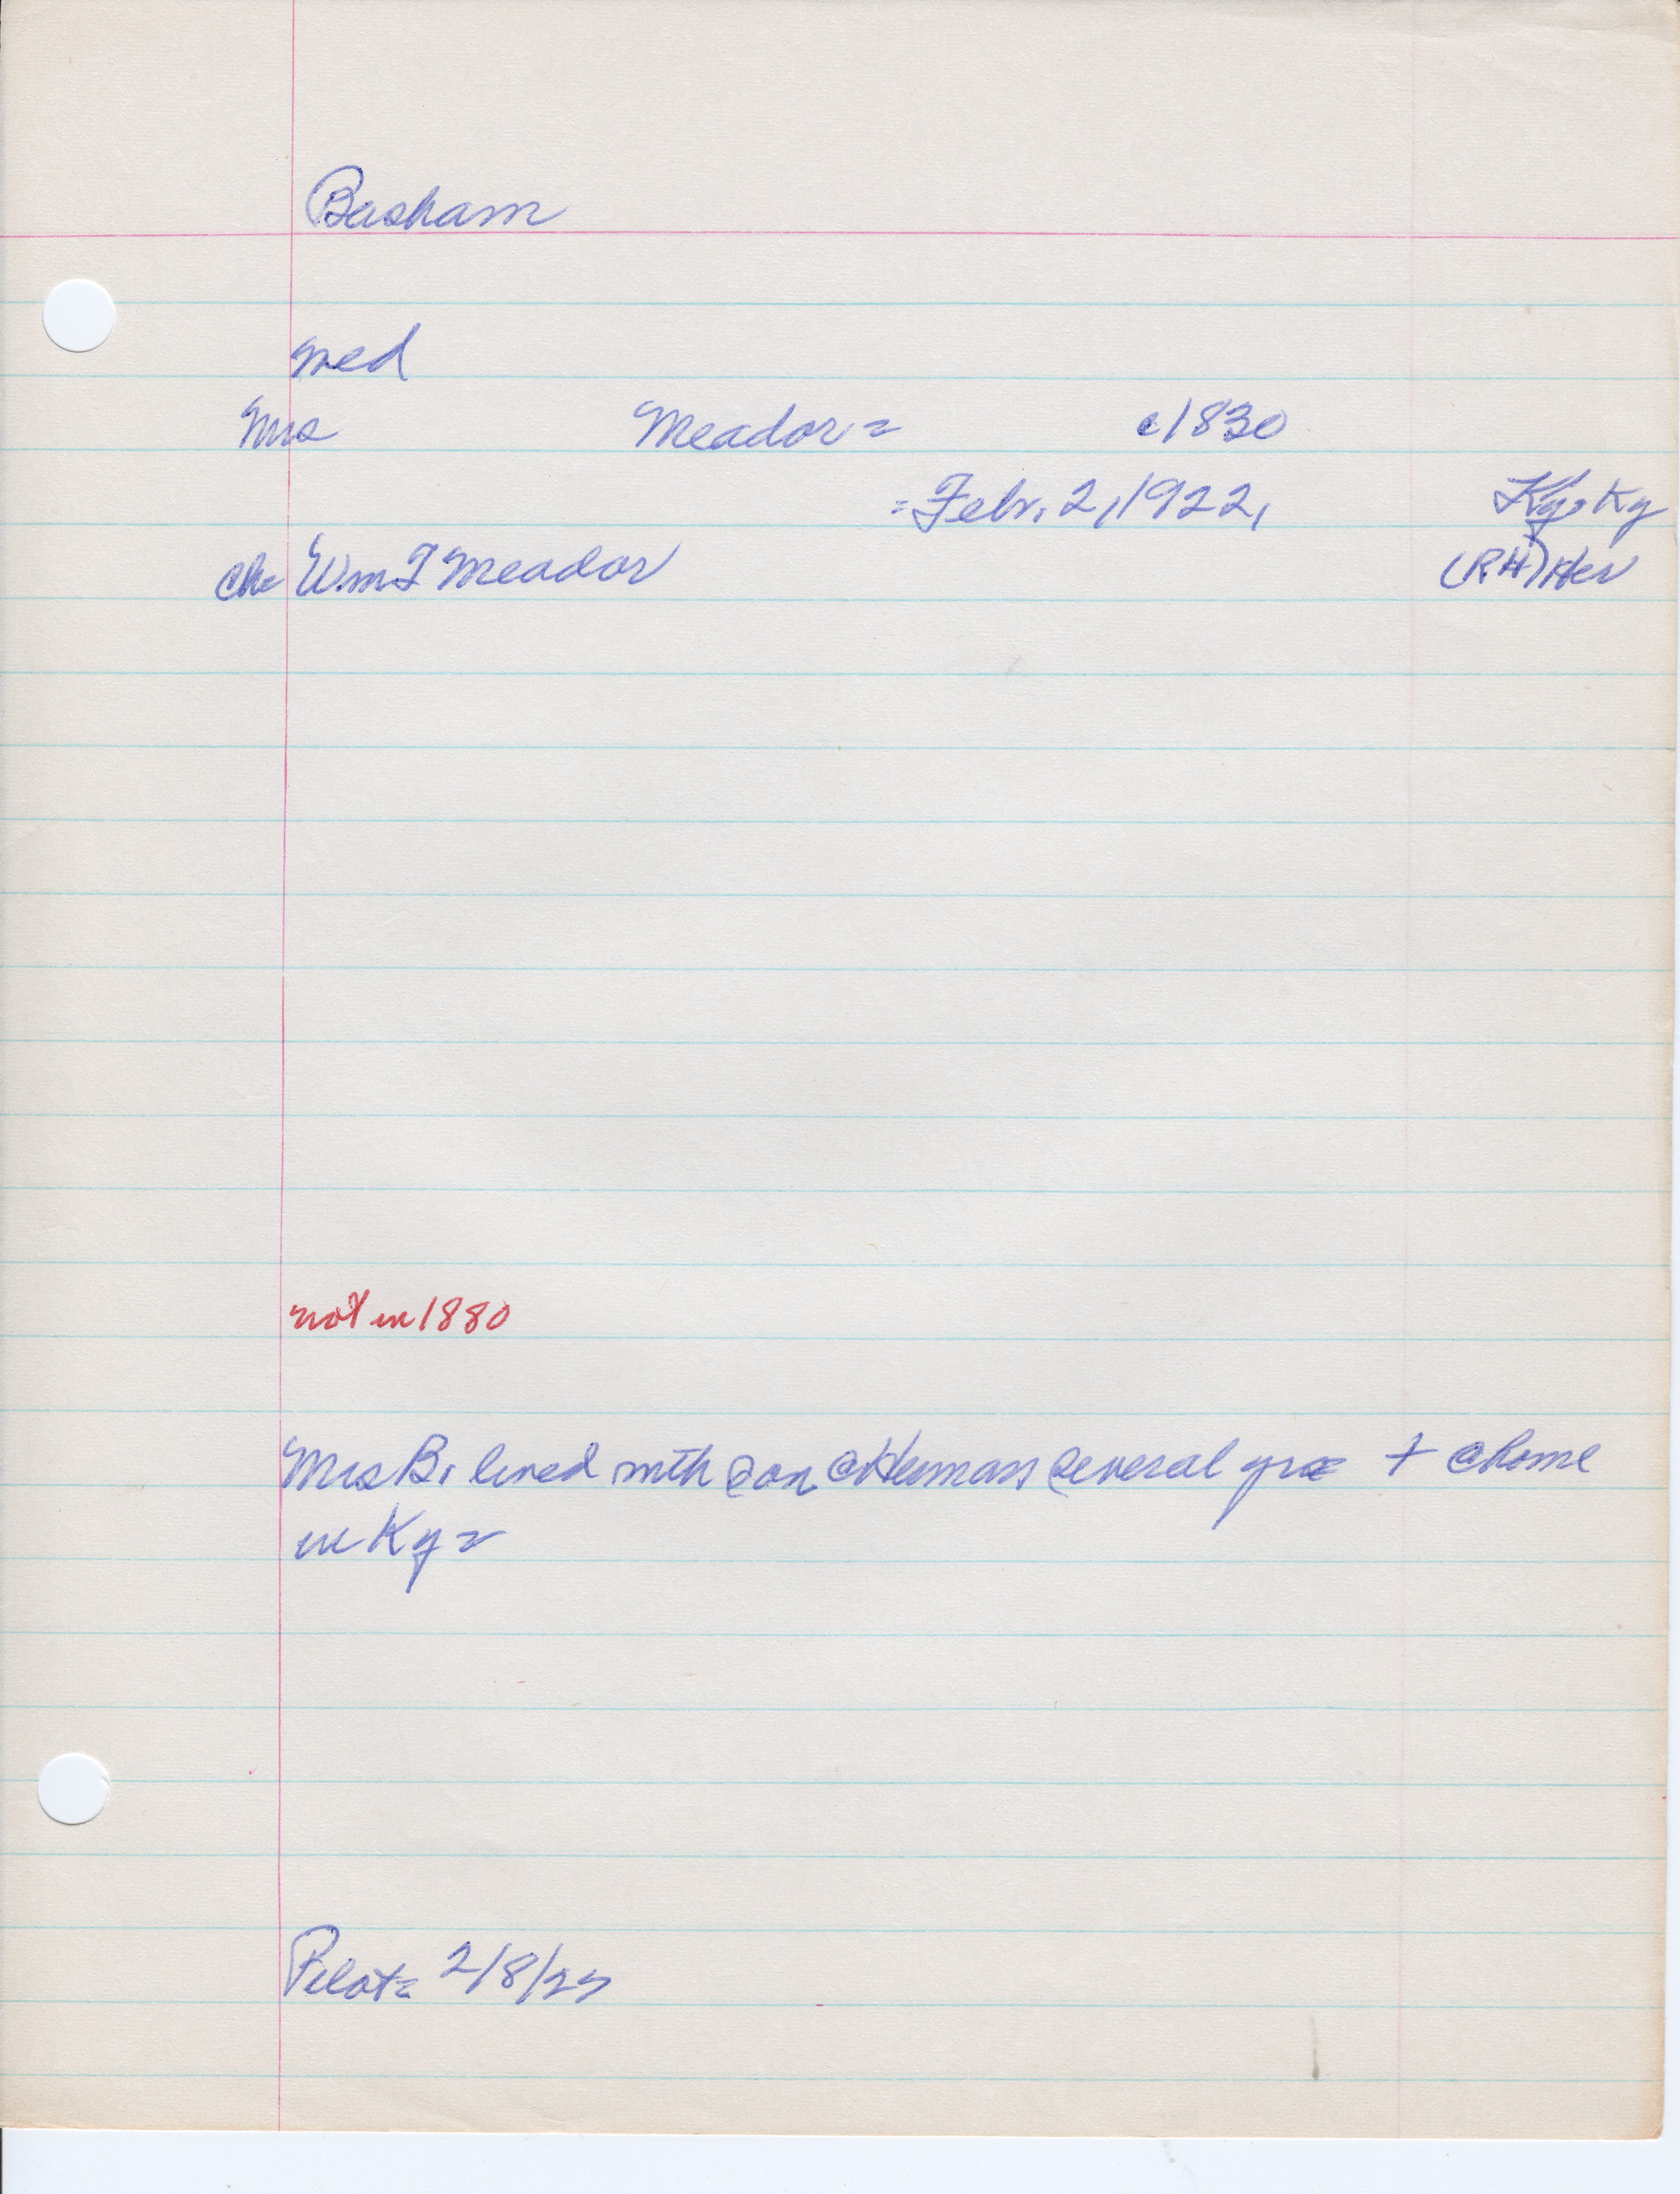 Basham
med
Mrs Meador = c1830
= Febr. 2, 1922, Ky. Ky
ch= Wm T Meador (RH) Her
not in 1880
Mrs B. lived with son @ Herman several yrs + @ home
in Ky =
Pilot= 2/8/22